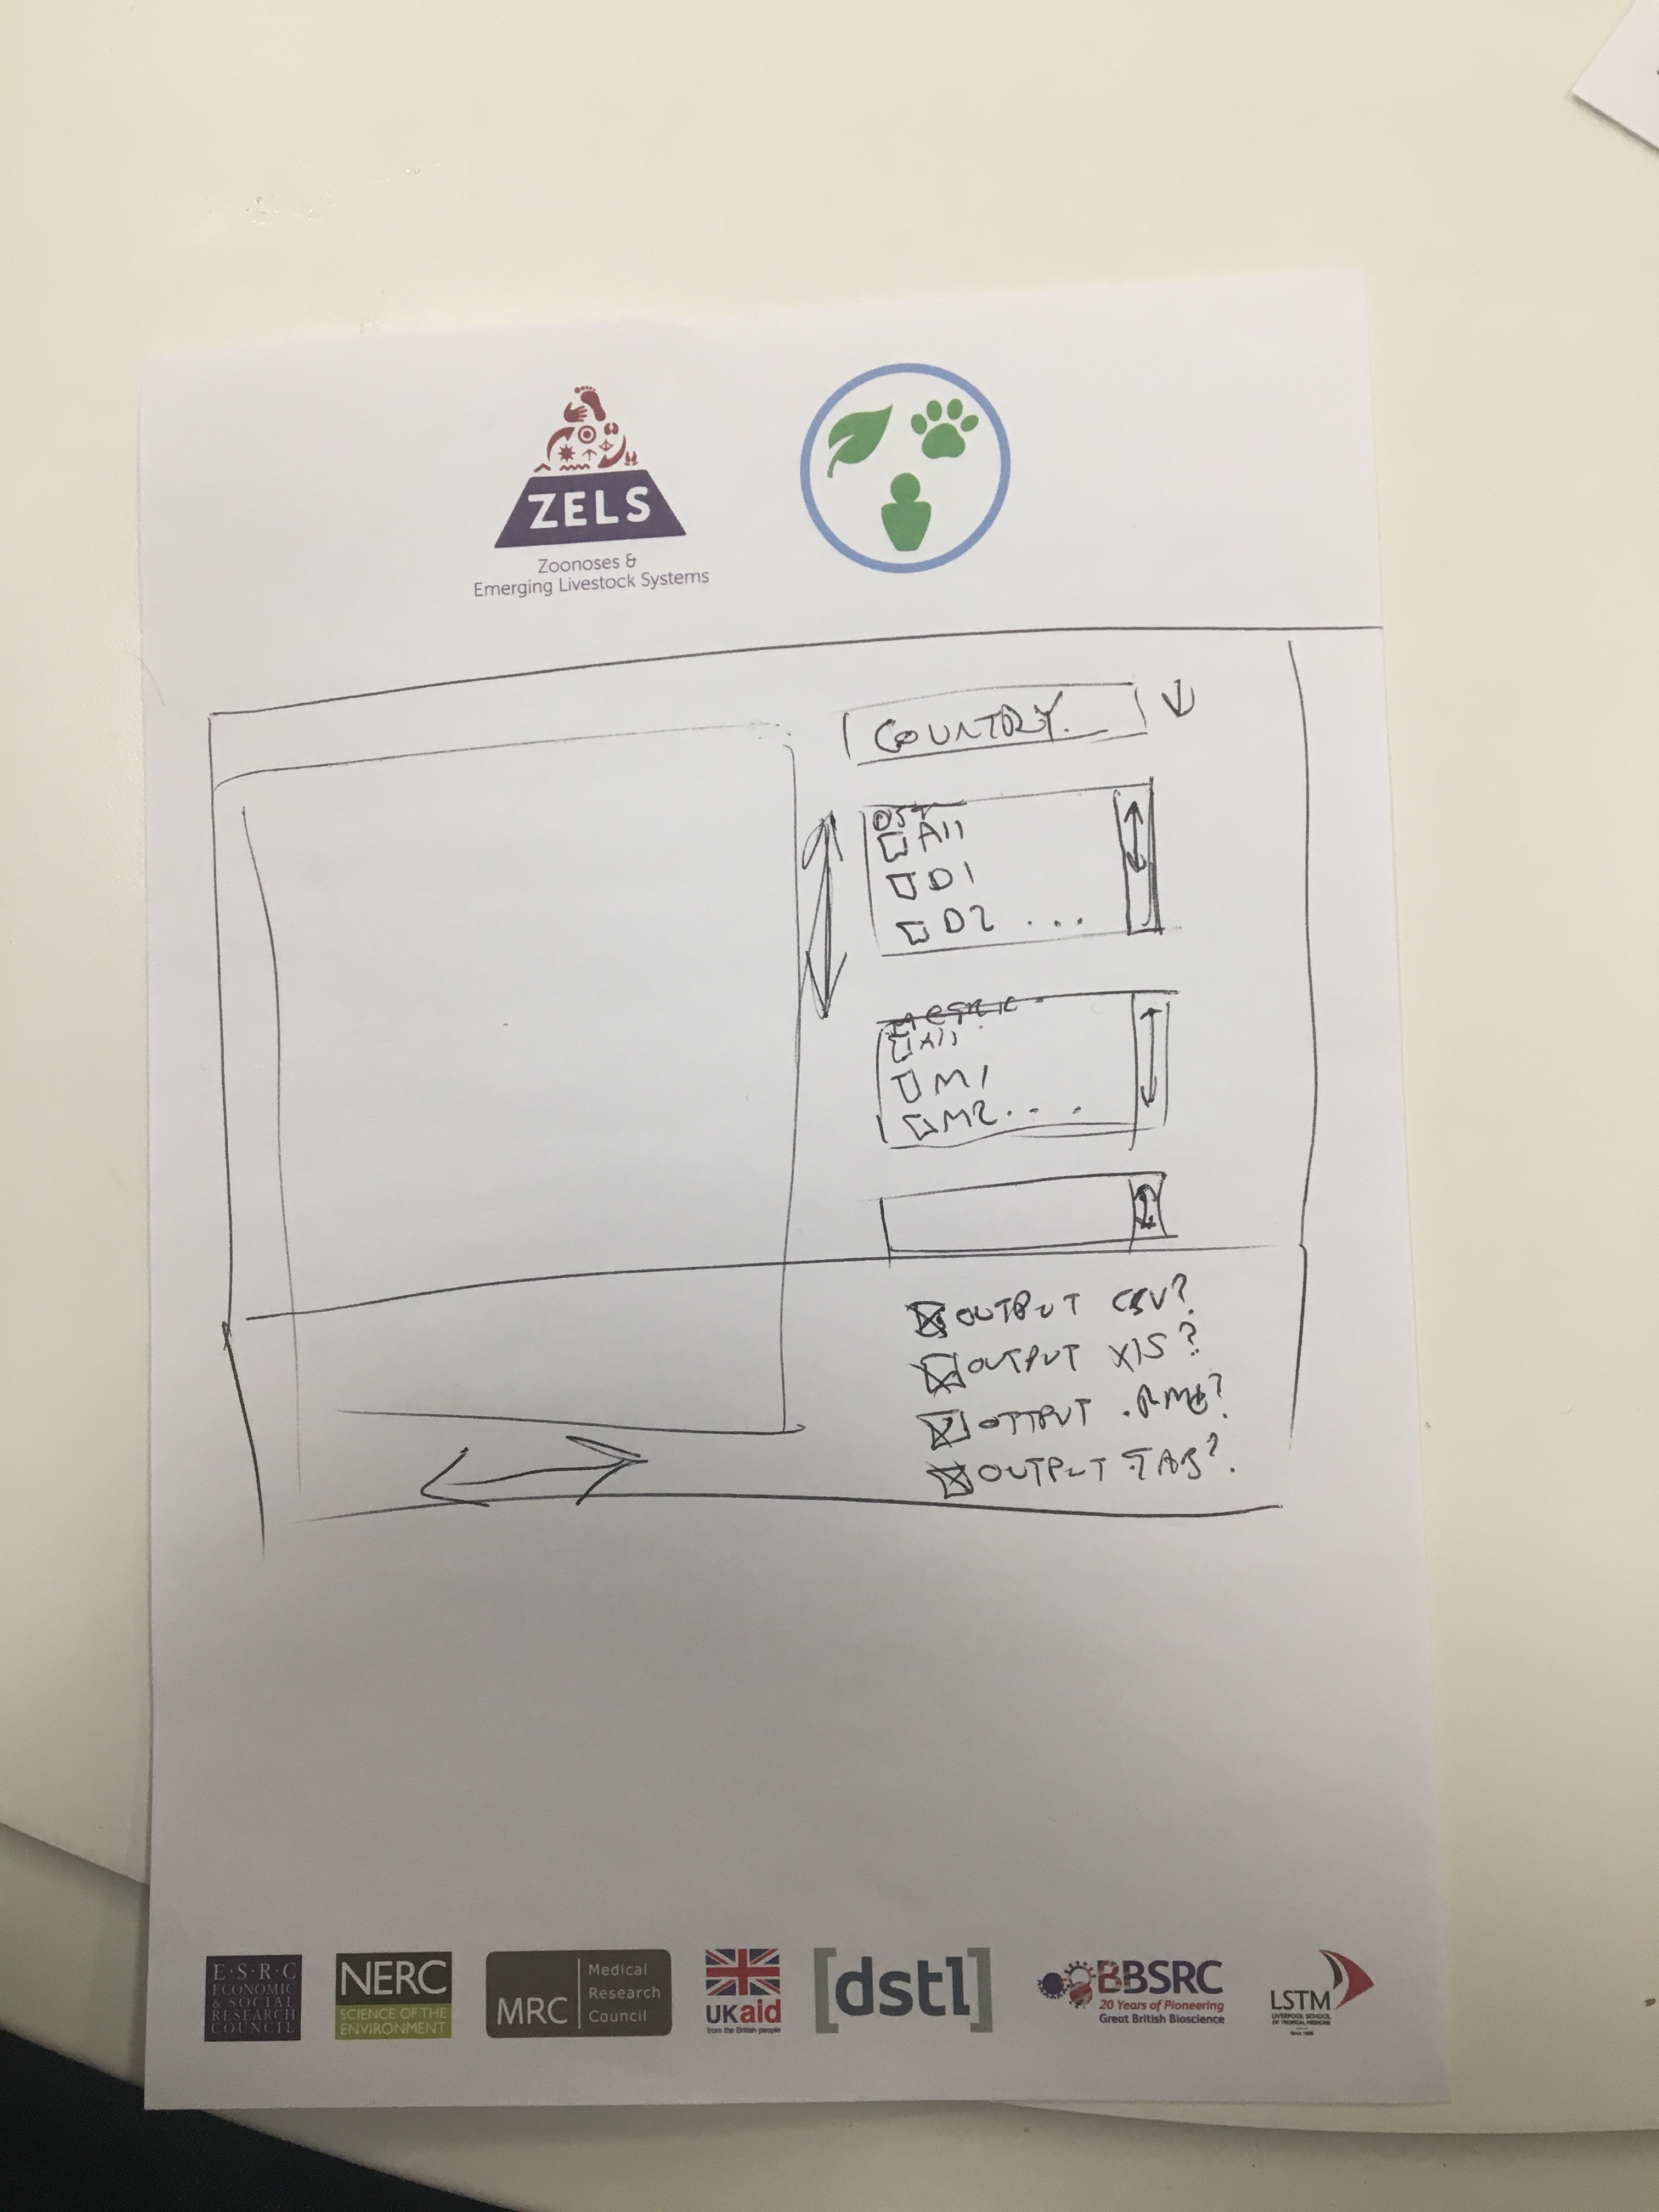 ZELS
Zoonoses &
Emerging Livestock Systems
COUNTRY.
All
D1
D2 ...
METRIC
All
M1
M2 ...
OUTPUT CSV?
OUTPUT XIS?
OTTPUT
OUTPUT TAB?
E·S·R·C
ECONOMIC
& SOCIAL
RESEARCH
COUNCIL
NERC
SCIENCE OF THE
ENVIRONMENT
MRC
Medical
Research
Council
UKaid
from the British people
[dstl]
BBSRC
20 Years of Pioneering
Great British Bioscience
LSTM
LIVERPOOL SCHOOL
OF TROPICAL MEDICINE